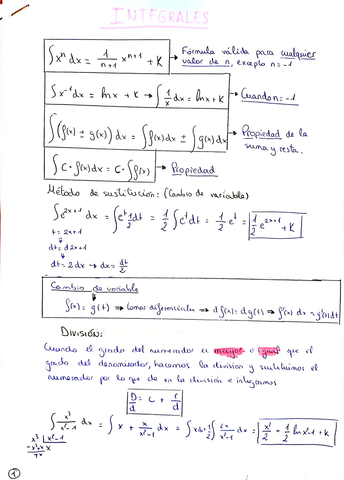 INTEGRALES
∫xⁿdx = 1/(n+1) xⁿ⁺¹ + K → Fórmula válida para cualquier valor de n, excepto n=-1
∫x⁻¹dx = lnx + K → ∫1/x dx = lnx + K → Cuando n=-1
∫(f(x) ± g(x)) dx = ∫f(x)dx ± ∫g(x)dx → Propiedad de la suma y resta.
∫C·f(x)dx = C·∫f(x) → Propiedad
Método de sustitución: (Cambio de variable)
∫e²ˣ⁺¹ dx = ∫eᵗ 1dt/2 = 1/2 ∫eᵗdt = 1/2 eᵗ = 1/2 e²ˣ⁺¹ + K
t = 2x+1
dt = d2x+1
dt = 2dx → dx = dt/2
Cambio de variable
f(x) = g(t) ⇒ tomar diferenciales ⇒ d f(x) = d g(t) ⇒ f'(x) dx = g'(t) dt
DIVISIÓN:
Cuando el grado del numerador es mayor o igual que el
grado del denominador, hacemos la division y sustituimos el
numerador por lo que de en la división e integramos
D/d = C + r/d
∫x³/(x²-1) dx = ∫x + x/(x²-1) dx = ∫xdx + 1/2 ∫2x/(x²-1) dx = x²/2 + 1/2 lnx²-1 + K
x³ |x²-1
-x³+x x
1